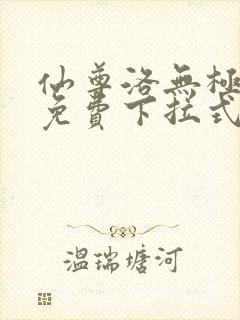 仙尊洛無極
免費下拉式
溫瑞塘河